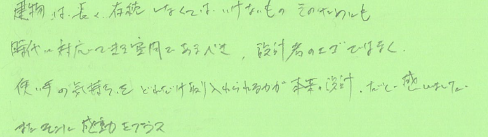 建物は長く存続しなくてはいけないもの そのためにも
時代に対応できる空間であるべき、設計者のエゴではなく、
使い手の気持ちをどれだけ取り入れられるかが本来の設計、だと感じました。
感動をプラス